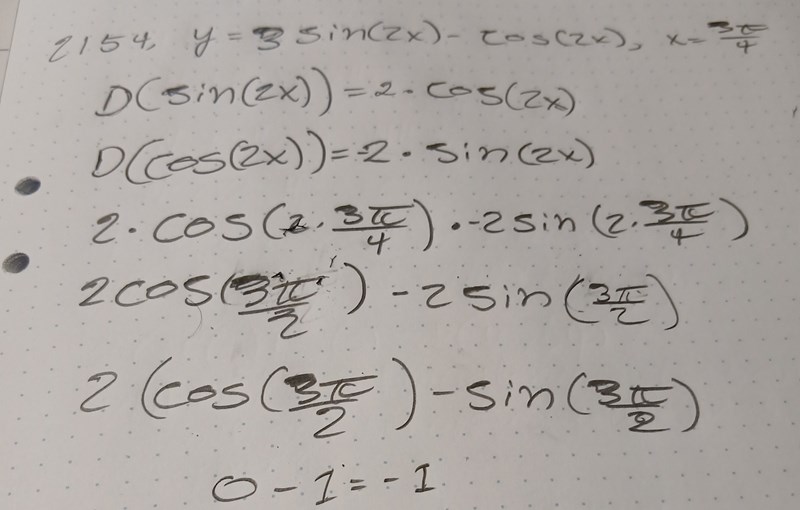 2154. y = 3 sin(2x) - cos(2x), x = 3π/4
D(sin(2x)) = 2 · cos(2x)
D(cos(2x)) = -2 · sin(2x)
2 · cos(2 · 3π/4) · -2 sin(2 · 3π/4)
2cos(3π/2) - 2 sin(3π/2)
2(cos(3π/2) - sin(3π/2)
0 - 1 = -1